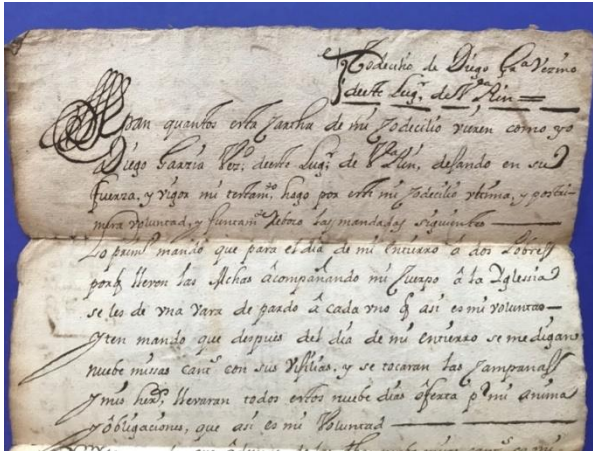 Codecilio de Diego Ga Vezino
deeste Lugr de Va Rin
Sepan quantos esta Carta de mi Codecilio vieren como yo
Diego Garzia Vezo deeste Lugr de Va Rin, dejando en su
fuerza, y vigor mi testamto hago por este mi Codecilio vltima, y postri
mera voluntad, y juntamte Reboco las mandadas siguientes
Lo primo mando que para el dia de mi entierro a dos Pobres
porq lleven las Achas acompañando mi Cuerpo â la Yglesia
se les de vna vara de pardo â cada vno q asi es mi voluntad
Yten mando que despues del dia de mi entierro se me digan
nuebe missas cants con sus Vijilias, y se tocaran las Campanas
Y mis hers llevaran todos estos nuebe dias ôferta pr mi anima
y obligaciones, que asi es mi Voluntad